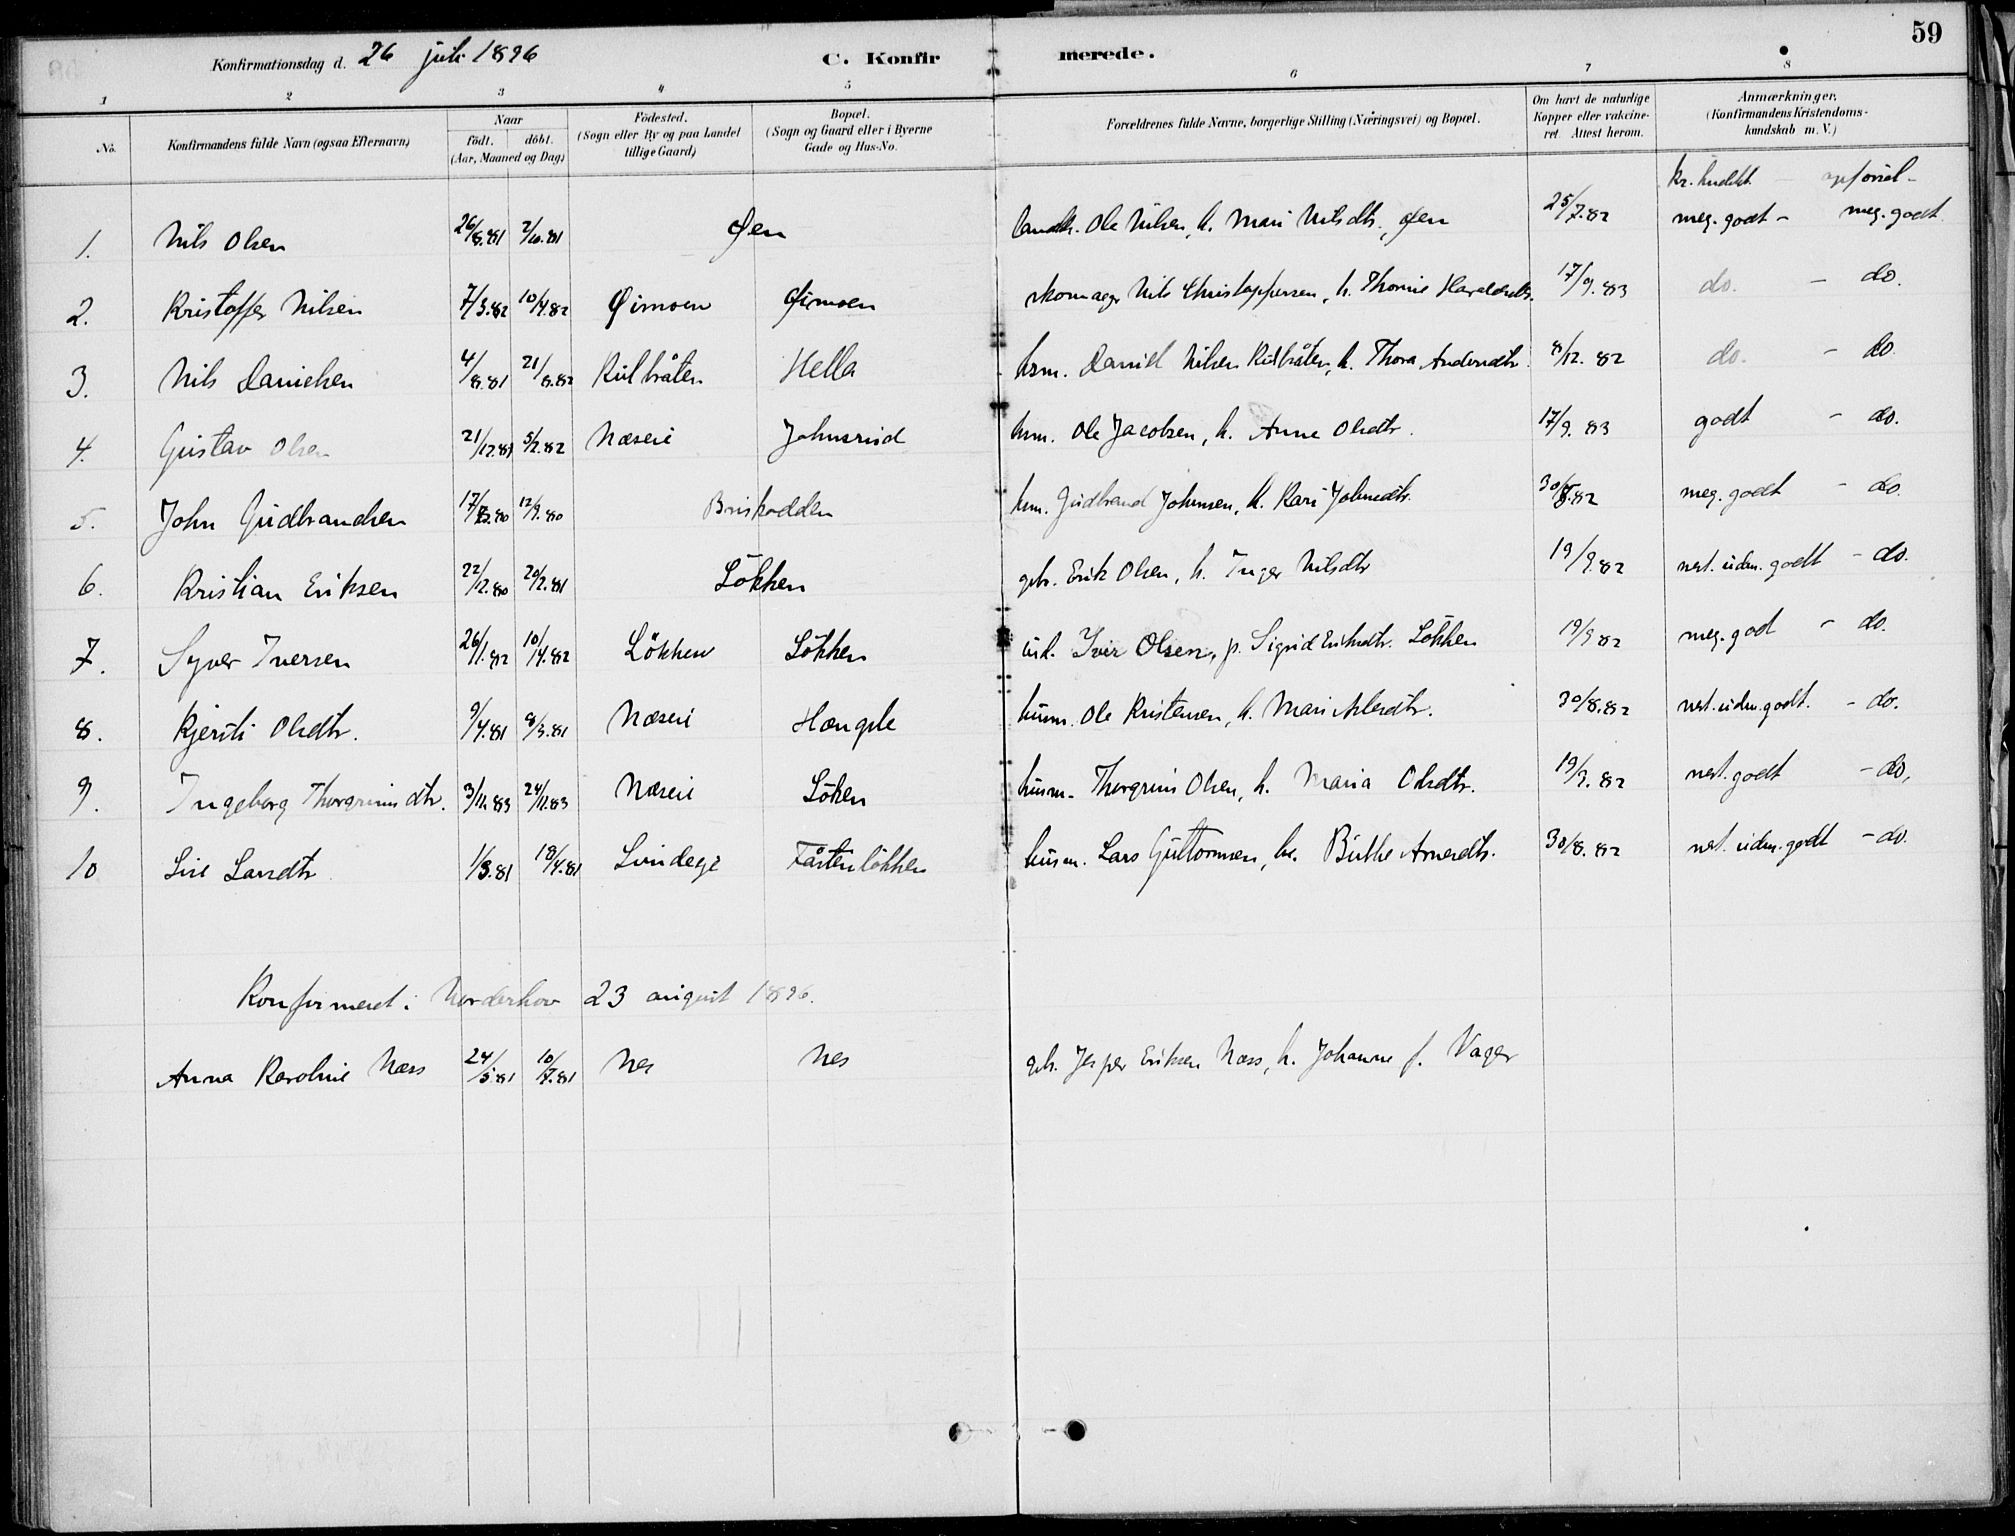 59
Konfirmationsdag d. 26 juli 1896 C. Konfirmerede.
1 2 3 4 5 6 7 8
No. Konfirmandens fulde Navn (ogsaa Efternavn) Naar født. døbt. (Aar, Maaned og Dag) Födested. (Sogn eller By og paa Landet tillige Gaard) Bopæl. (Sogn og Gaard eller i Byerne Gade og Hus-No. Forældrenes fulde Navne, borgerlige Stilling (Næringsvei) og Bopæl. Om havt de naturlige Kopper eller vakcineret. Attest herom. Anmærkninger. (Konfirmandens Kristendomskundskab m. V.)
1. Nils Olsen 26/8.81 2/10.81 Øen Ole Nilsen, h. Mari Nilsdtr., Øen 25/7.82 meg. godt - meg. godt
2. Kristoffer Nilsen 7/3.82 10/4.82 Øimoen Øimoen skomager Nils Christophersen, h. Thorine Haraldsdtr. 17/9.83 do. - do.
3. Nils Danielsen 4/8.81 21/8.82 Kulbråten Hella hsm. Daniel Nilsen Kulbråten, h. Thora Andersdtr. 8/12.82 do. - do.
4. Gustav Olsen 21/12.81 5/2.82 Næseie Johnsrud hsm. Ole Jacobsen, h. Anne Olsdtr. 17/9.83 godt - do.
5. John Gudbrandsen 17/8.80 12/9.80 Briskodden hsm. Gudbrand Johnsen, h. Kari Johnsdtr. 30/8.82 meg. godt - do.
6. Kristian Eriksen 22/12.80 20/2.81 Løkken gbr. Erik Olsen, h. Inger Nilsdtr 19/9.82 nest. udm. godt - do.
7. Syver Iversen 26/1.82 10/4.82 Løkken Løkken Iver Olsen, p. Sigrid Eriksdtr. Løkken 19/9.82 meg. god - do.
8. Kjersti Olsdtr. 9/4.81 8/5.81 Næseie Haugsle husm. Ole Kristensen, h. Mari Aslesdtr. 30/8.82 nest. udm. godt. - do.
9. Ingeborg Thorgrimsdtr. 3/11.83 24/11.83 Næseie Løken husm. Thorgrim Olsen, h. Maria Olsdtr. 19/9.82 nest. godt - do.
10 Lise Larsdtr 1/3.81 18/4.81 Lindege Fåstenløkken husm. Lars Guttormsen, h. Birthe Arnesdtr. 30/8.82 nest. udm. godt - do.
Konfirmeret i Norderhov 23 august 1896.
Anna Karoline Næss 24/5.81 10/7.81 Nes Nes gb. Jesper Eriksen Næss, h. Johanne f. Vager